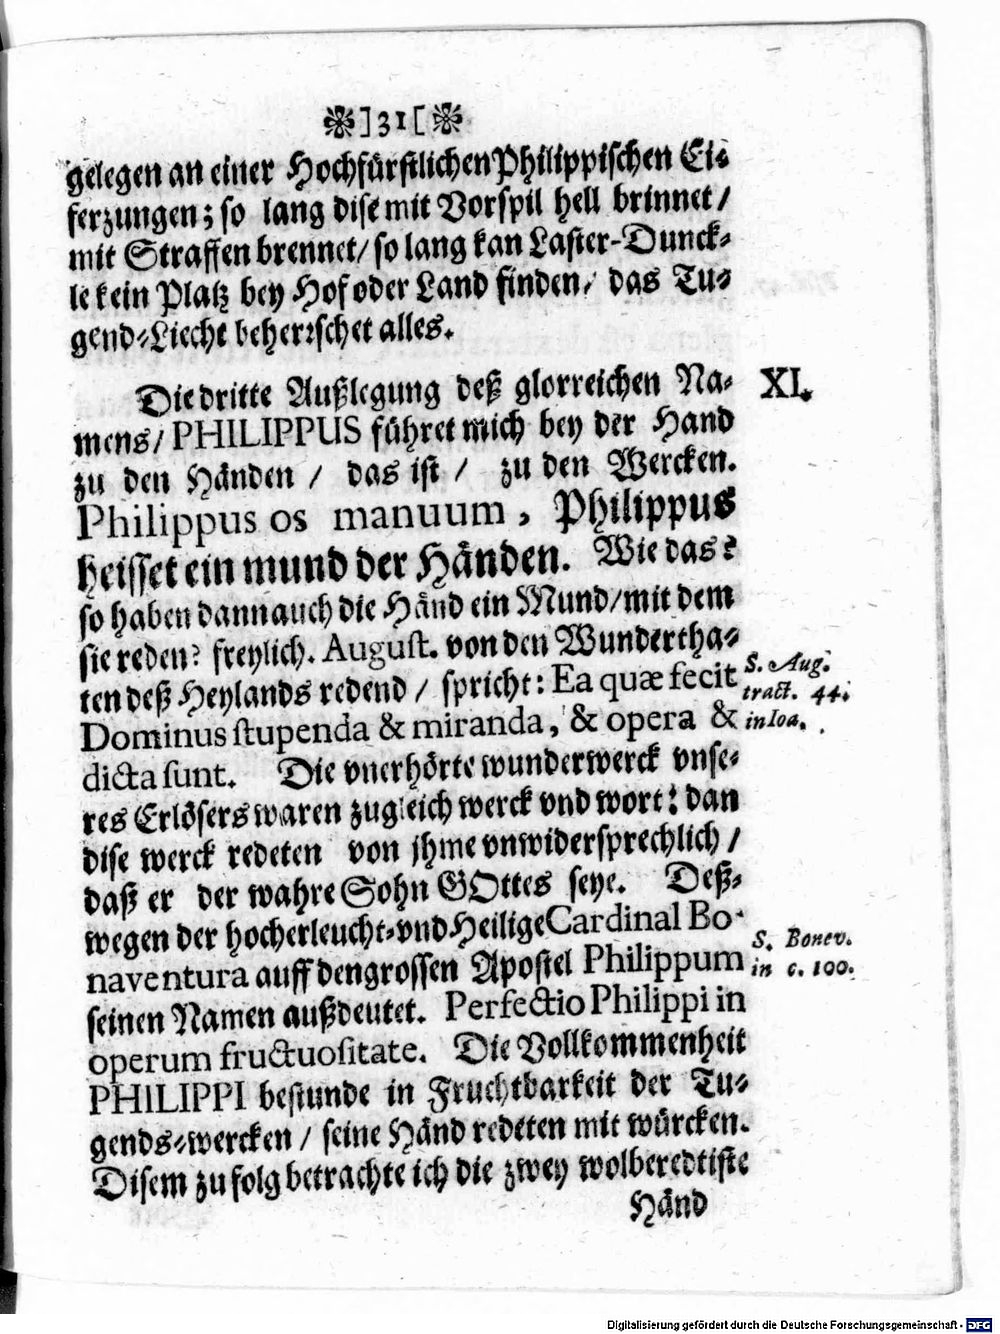 ❋]31[❋
gelegen an einer Hochfürstlichen Philippischen Ei⸗
ferzungen; so lang dise mit Vorspil hell brinnet /
mit Straffen brennet / so lang kan Laster-Dunck⸗
le kein Platz bey Hof oder Land finden / das Tu⸗
gend⸗Liecht beherꝛschet alles.
Die dritte Außlegung deß glorreichen Na⸗
mens / PHILIPPUS führet mich bey der Hand
XI.
zu den Händen / das ist / zu den Wercken.
Philippus os manuum, Philippus
heisset ein mund der Händen. Wie das?
so haben dann auch die Händ ein Mund / mit dem
sie reden? freylich. August. von den Wundertha⸗
ten deß Heylands redend / spricht: Ea quæ fecit
Dominus stupenda & miranda, & opera &
dicta sunt. Die vnerhörte wunderwerck vnse⸗
S. Aug.
tract. 44.
in Ioa.
res Erlösers waren zugleich werck vnd wort: dan
dise werck redeten von jhme vnwidersprechlich /
daß er der wahre Sohn GOttes seye. Deß⸗
wegen der hocherleucht⸗vnd Heilige Cardinal Bo-
naventura auff den grossen Apostel Philippum
S. Bonev.
in c. 100.
seinen Namen außdeutet. Perfectio Philippi in
operum fructuositate. Die Vollkommenheit
PHILIPPI bestunde in Fruchtbarkeit der Tu⸗
gends⸗wercken / seine Händ redeten mit würcken.
Disem zu folg betrachte ich die zwey wolberedtiste
Händ
Digitalisierung gefördert durch die Deutsche Forschungsgemeinschaft - DFG